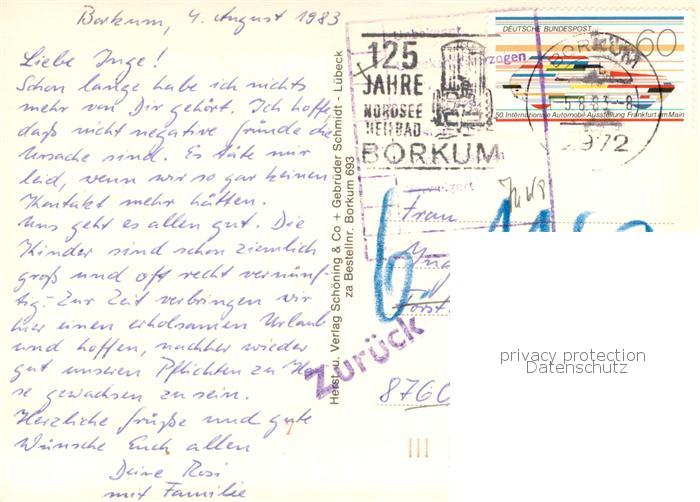 Borkum, 4. August 1983
Liebe Inge!
Schon lange habe ich nichts
mehr von Dir gehört. Ich hoffe
daß nicht negative Gründe die
Ursache sind. Es täte mir
leid, wenn wir so gar keinen
Kontakt mehr hätten.
Uns geht es allen gut. Die
Kinder sind schon ziemlich
groß und oft recht vernünf-
tig. Zur Zeit verbringen wir
hier einen erholsamen Urlaub
und hoffen, nachher wieder
gut unseren Pflichten zu Hau-
se gewachsen zu sein.
Herzliche Grüße und gute
Wünsche Euch allen
Deine Rosi
mit Familie
Herst. u. Verlag Schöning & Co + Gebrüder Schmidt - Lübeck
za Bestellnr. Borkum 693
125
JAHRE
NORDSEE
HEILBAD
BORKUM
DEUTSCHE BUNDESPOST
60
50. Internationale Automobil-Ausstellung Frankfurt am Main
BORKUM
-5.8.83-8
2972
Frau
6
Zurück
8760
privacy protection
Datenschutz